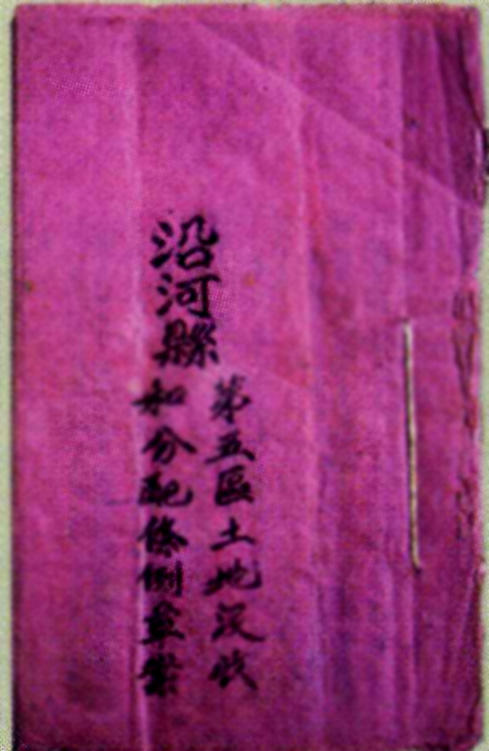 沿河縣
第五區土地没收
和分配條例草案